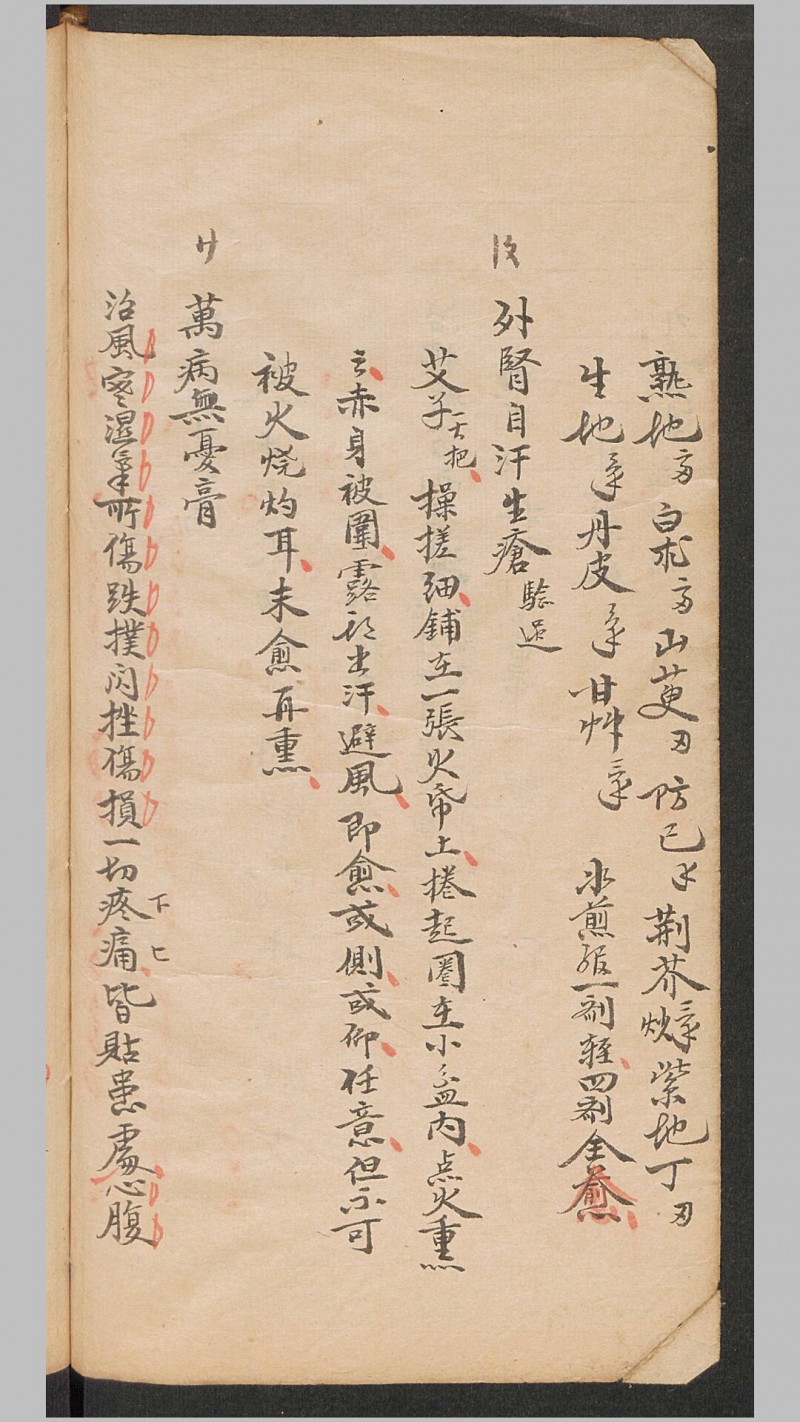 熟地 白朮 山萸 防己 荆芥炒 紫地丁
生地 丹皮 甘艸 水煎服一剂輕四剂全愈
外腎自汗生瘡
艾子一大把操搓细鋪在一張火帋上捲起圈在小盆内点火熏
之赤身被圍露 出汗避風即愈或側或仰任意但不可
被火烧灼耳未愈再熏
萬病無憂膏
治風寒湿氣所傷跌撲闪挫傷損一切疼痛皆貼患處心腹